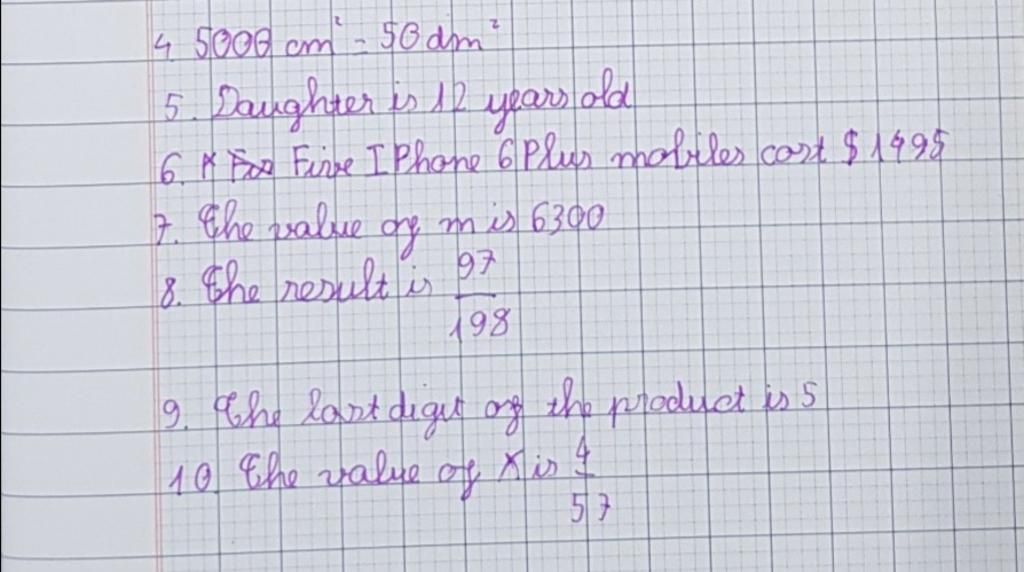 4. 5000 cm² = 50 dm²
5. Daughter is 12 years old
6. Five IPhone 6Plus mobiles cost $ 1495
7. The value of m is 6300
8. The result is 97/198
9. The last digit of the product is 5
10 The value of x is 4/57